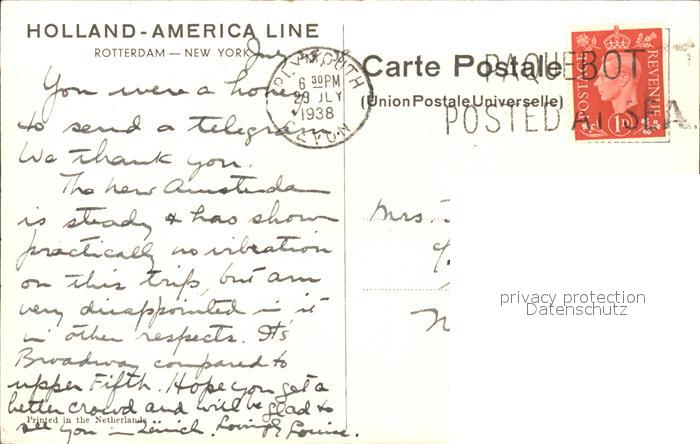 HOLLAND-AMERICA LINE
ROTTERDAM — NEW YORK
You were a honey
to send a telegram.
We thank you.
The new Amsterdam
is steady & has shown
practically no vibration
on this trip, but am
very disappointed in it
in other respects. It's
Broadway compared to
upper Fifth. Hope you get a
better crowd and will be glad to
see you in Zürich. Loving Louise.
Printed in the Netherlands
PLYMOUTH
6 30PM
29 JLY
1938
DEVON
Carte Postale
(Union Postale Universelle)
PAQUEBOT
POSTED AT SEA.
POSTAGE
REVENUE
1D
Mrs.
c/
privacy protection
Datenschutz